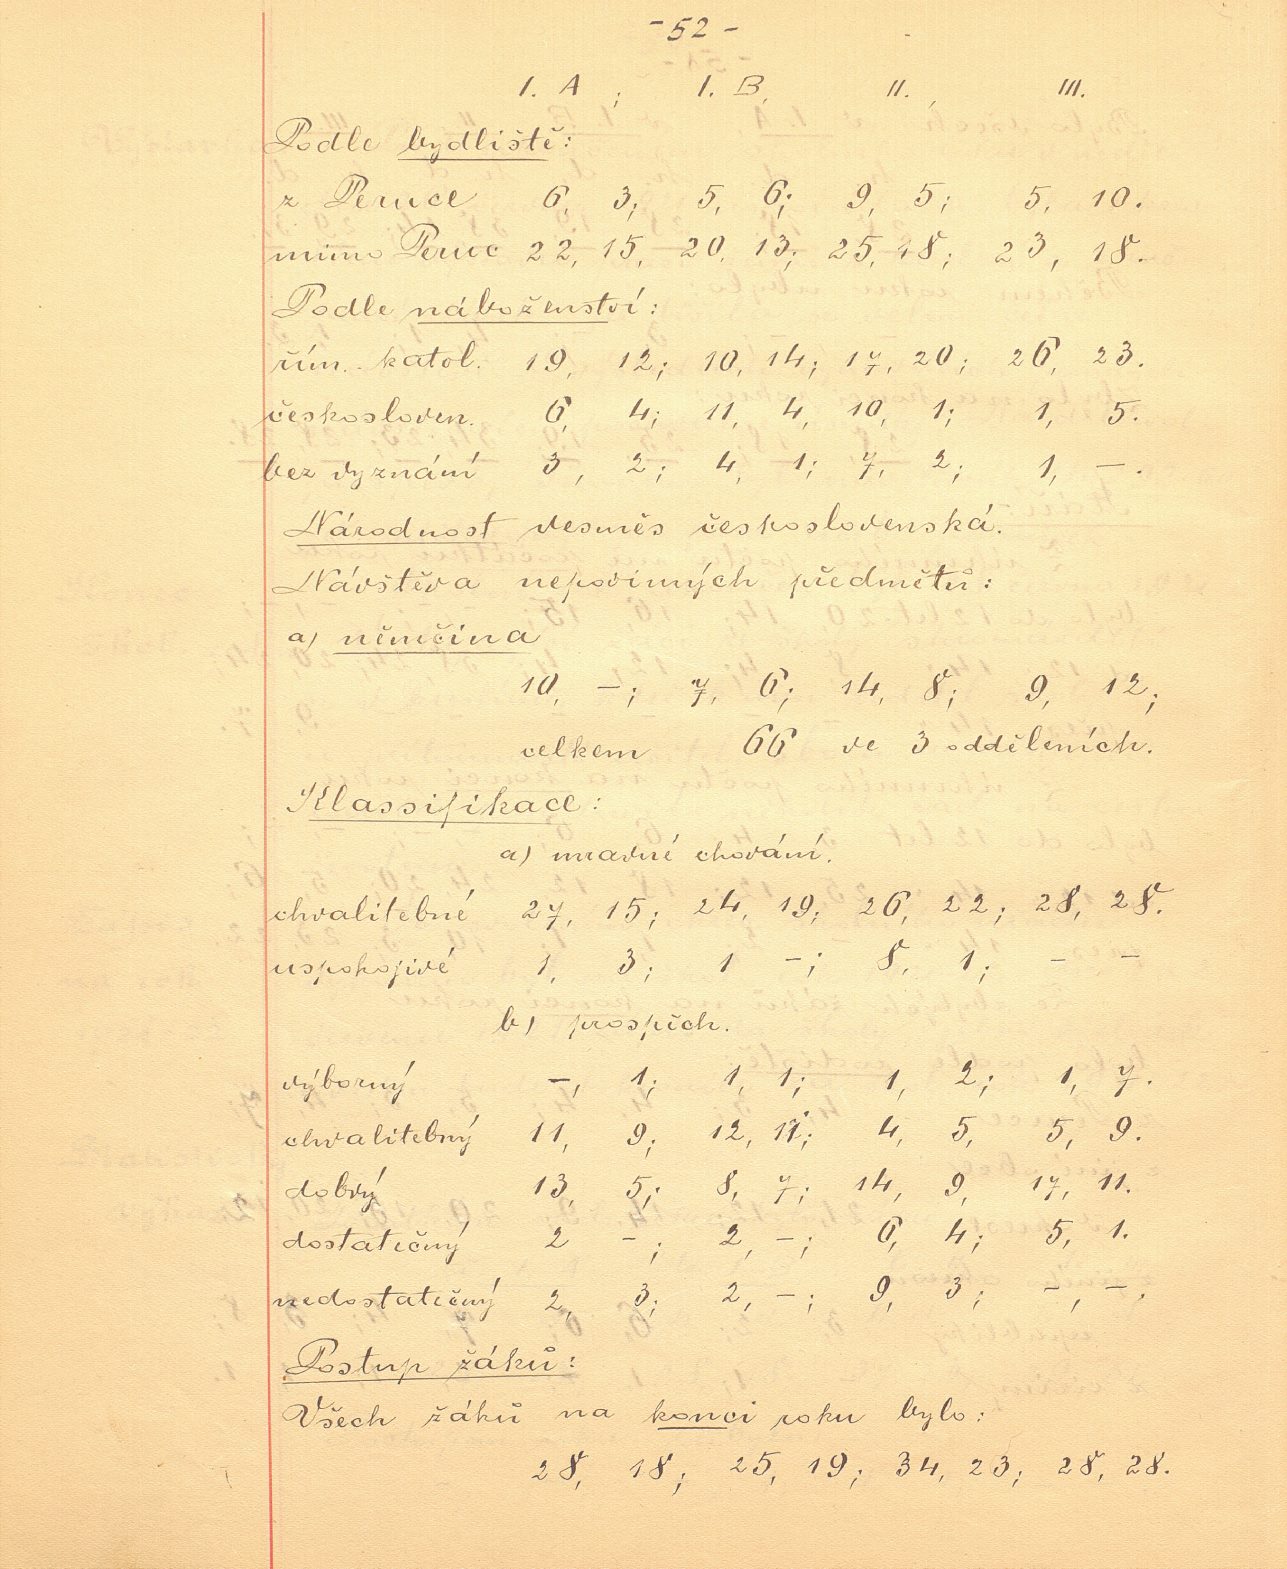 - 52 -
I. A ; I. B, II. , III.
Podle bydliště:
z Peruce 6, 3; 5, 6; 9, 5; 5, 10.
mimo Peruc 22, 15, 20, 13; 25, 18; 23, 18.
Podle náboženství:
řím. katol. 19, 12; 10, 14; 17, 20; 26, 23.
českosloven. 6, 4; 11, 4, 10, 1; 1, 5.
bez vyznání 3, 2; 4, 1; 7, 2; 1, —.
Národnost vesměs československá.
Návštěva nepovinných předmětů:
a) němčina
10, —; 7, 6; 14, 8; 9, 12;
celkem 66 ve 3 odděleních.
Klassifikace:
a) mravné chování.
chvalitebné 27, 15; 24, 19; 26, 22; 28, 28.
uspokojivé 1, 3; 1 —; 8, 1; — —
b) prospěch.
výborný —, 1; 1, 1; 1, 2; 1, 7.
chvalitebný 11, 9; 12, 11; 4, 5, 5, 9.
dobrý 13, 5; 8, 7; 14, 9, 17, 11.
dostatečný 2 — ; 2, —; 6, 4; 5, 1.
nedostatečný 2, 3; 2, —; 9, 3; —, —.
Postup žáků:
Všech žáků na konci roku bylo:
28, 18; 25, 19; 34, 23; 28, 28.